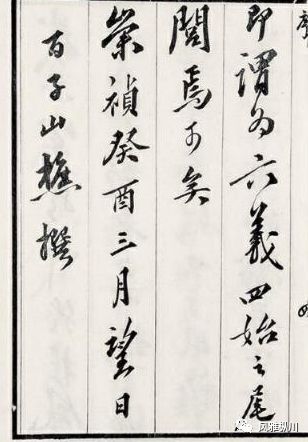 即謂為六義四始之尾
閭焉可矣
崇禎癸酉三月望日
百子山樵撰
风雅纵川